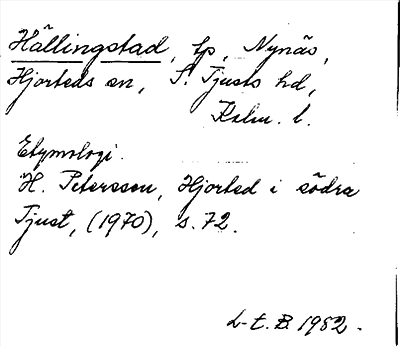 Hällingstad, tp, Nynäs,
Hjorteds sn, S. Tjusts hd,
Kalm. l.
Etymologi.
H. Petersson, Hjorted i södra
Tjust, (1970), s. 72.
L-t. B. 1982.